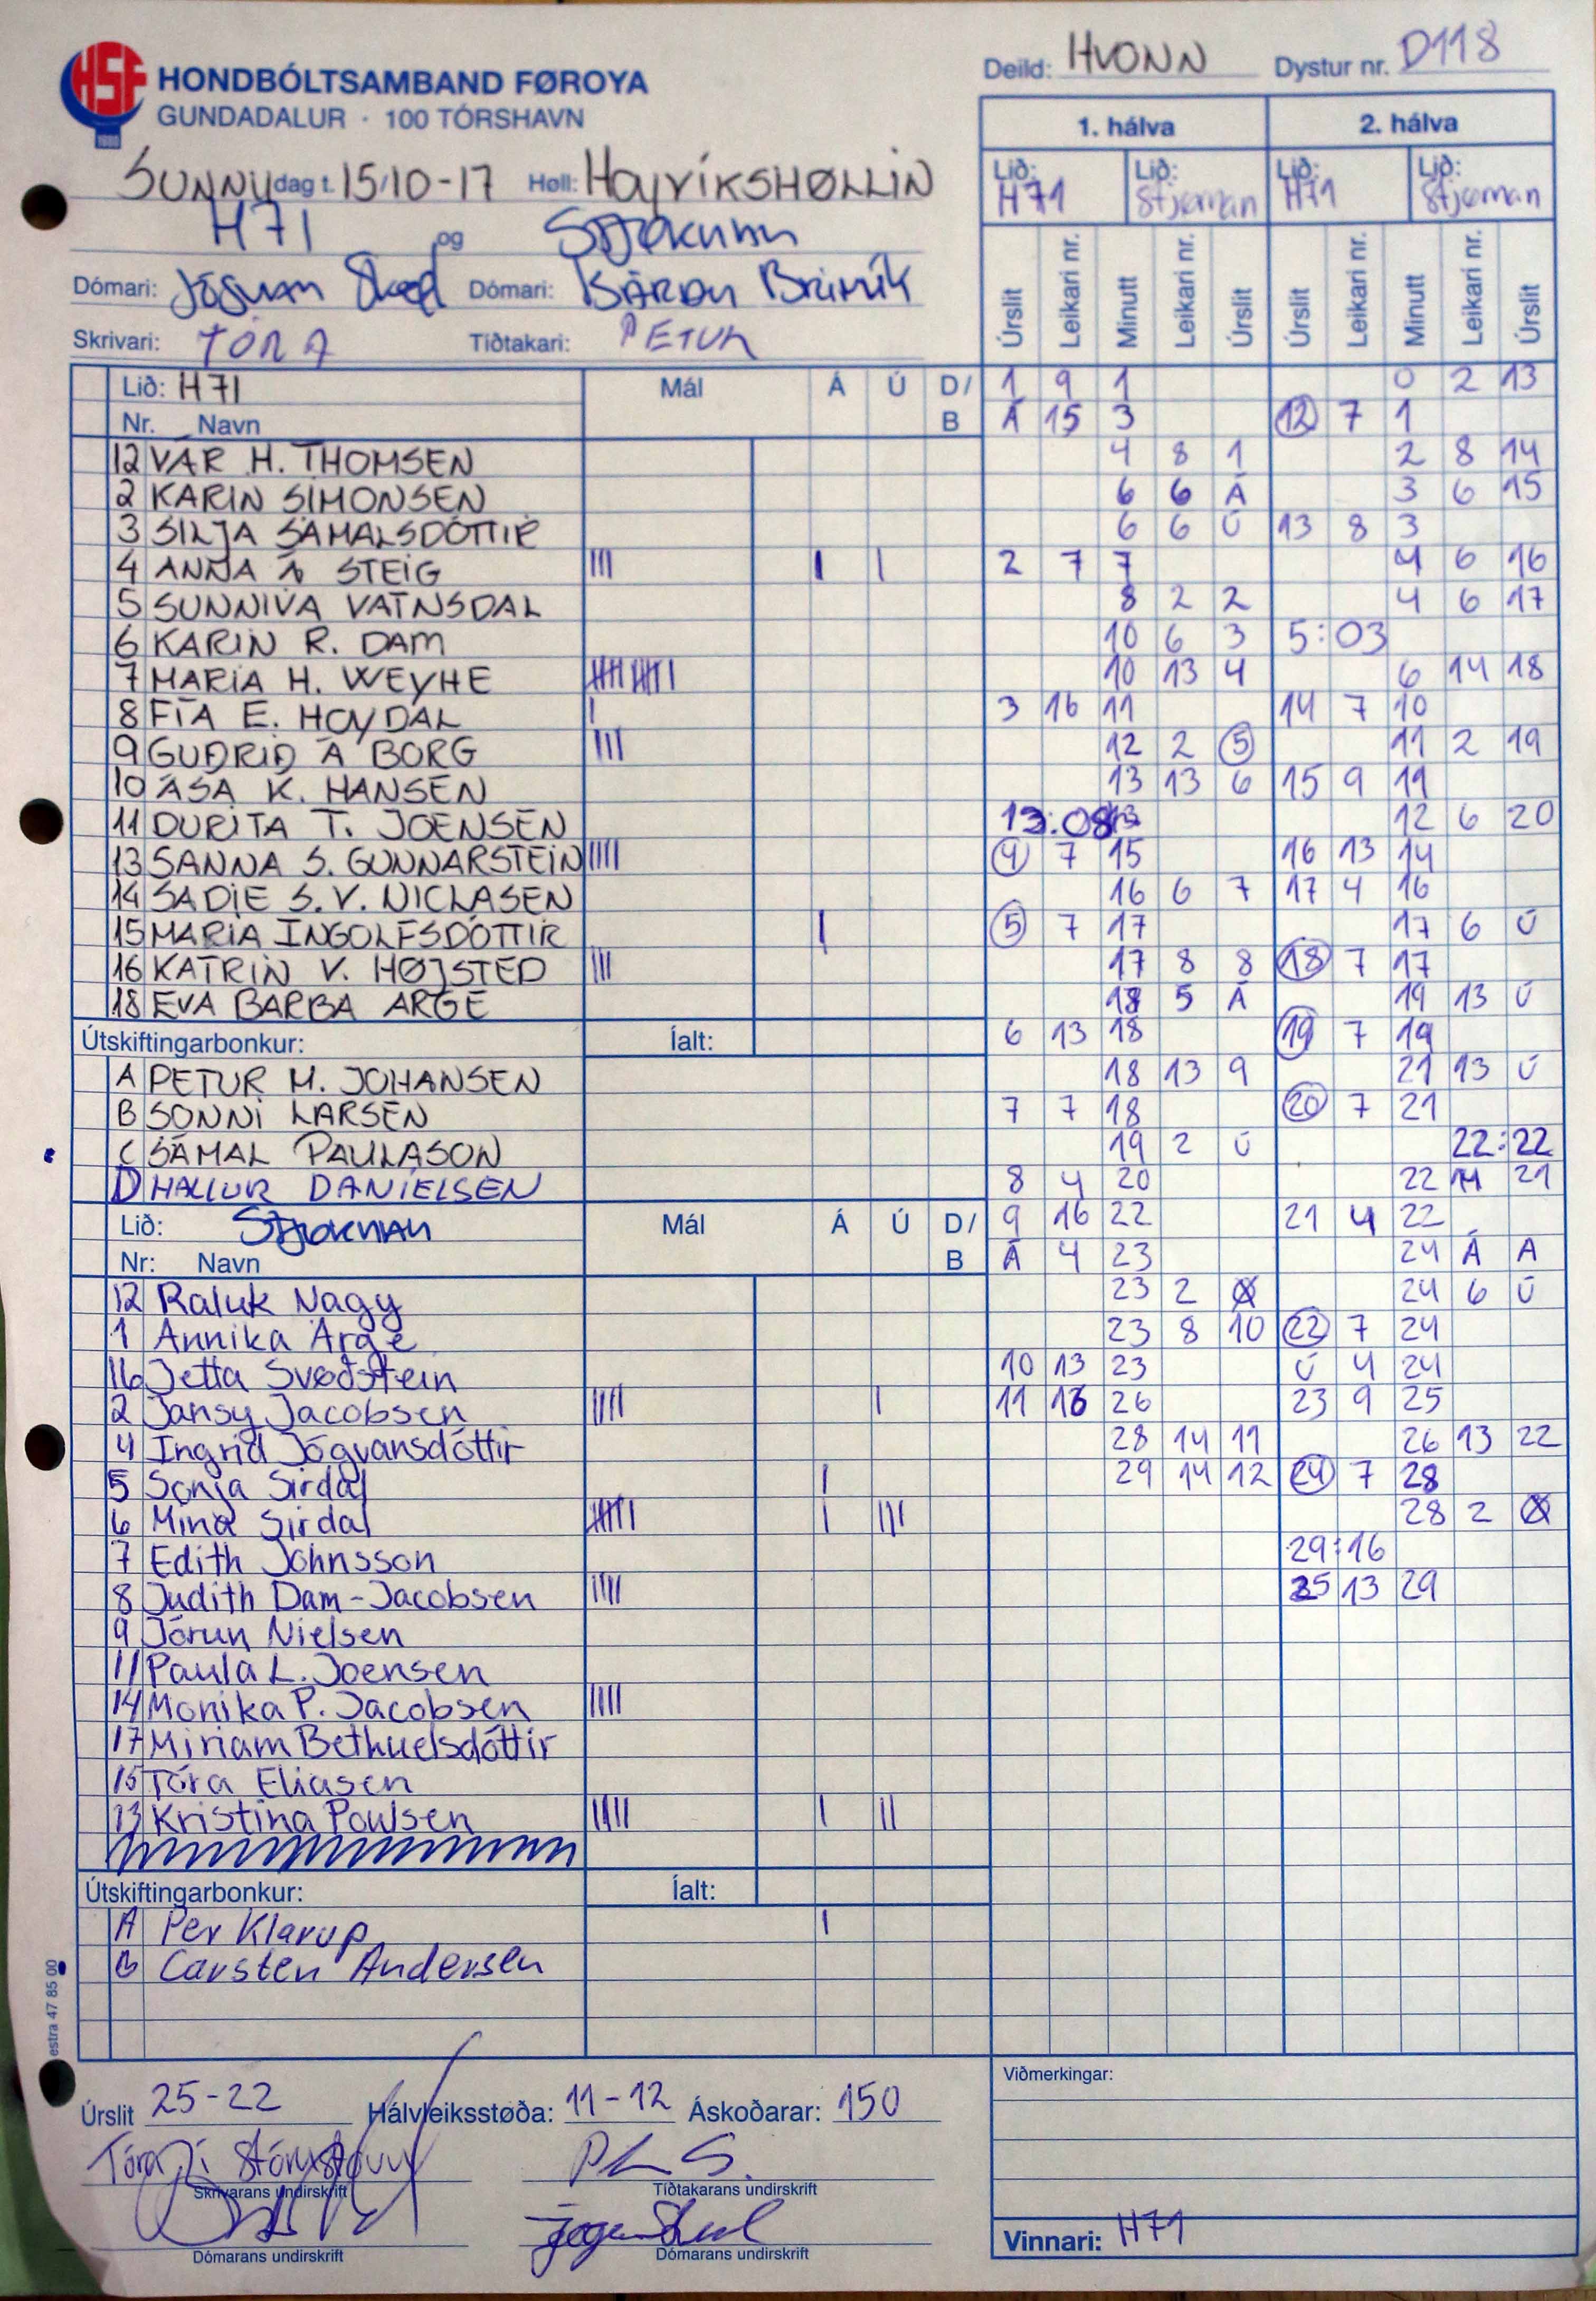 HSF
1980
HONDBÓLTSAMBAND FØROYA
GUNDADALUR · 100 TÓRSHAVN
Deild: HVONN Dystur nr. D118
SUNNUdag t. 15/10-17 Høll: HOYVÍKSHØLLIN
H71 og Stjørnan
Dómari: Jógvan Dómari: BÁRÐU
Skrivari: TÓRA Tíðtakari: PETUR
1. hálva 2. hálva
Lið: H71 Lið: Stjørnan Lið: H71 Lið: Stjørnan
Úrslit Leikari nr. Minutt Leikari nr. Úrslit Úrslit Leikari nr. Minutt Leikari nr. Úrslit
Lið: H71 Mál Á Ú D/
Nr. Navn B
12 VÁR H. THOMSEN
2 KARIN SIMONSEN
3 SILJA SÁMALSDÓTTIR
4 ANNA Á STEIG III I I
5 SUNNIVA VATNSDAL
6 KARIN R. DAM
7 MARIA H. WEYHE
8 FÍA E. HOYDAL I
9 GUÐRIÐ Á BORG III
10 ÁSA K. HANSEN
11 DURITA T. JOENSEN
13 SANNA S. GUNNARSTEIN IIII
14 SADIE S. V. NICLASEN
15 MARIA INGOLFSDÓTTIR I
16 KATRIN V. HØJSTED III
18 EVA BARBA ARGE
Útskiftingarbonkur: Íalt:
A PETUR M. JOHANSEN
B SONNI LARSEN
C SÁMAL PAULASON
D HALLUR DANIELSEN
Lið: Stjørnan Mál Á Ú D/
Nr: Navn B
12 Raluk Nagy
1 Annika Arge
16 Jetta Svøðstein
2 Jansy Jacobsen IIII I
4 Ingrid Jógvansdóttir
5 Sonja Sirdal I
6 Mina Sirdal I III
7 Edith Johnsson
8 Judith Dam-Jacobsen IIII
9 Jórun Nielsen
11 Paula L. Joensen
14 Monika P. Jacobsen IIII
17 Miriam Bethuelsdóttir
15 Tóra Eliasen
13 Kristina Poulsen IIII I II
Útskiftingarbonkur: Íalt:
A Per Klarup I
B Carsten Andersen
1 9 1 0 2 13
Á 15 3 12 7 1
4 8 1 2 8 14
6 6 Á 3 6 15
6 6 Ú 13 8 3
2 7 7 4 6 16
8 2 2 4 6 17
10 6 3 5:03
10 13 4 6 14 18
3 16 11 14 7 10
12 2 5 11 2 19
13 13 6 15 9 11
13:08 12 6 20
4 7 15 16 13 14
16 6 7 17 4 16
5 7 17 17 6 Ú
17 8 8 18 7 17
18 5 Á 19 13 Ú
6 13 18 19 7 19
18 13 9 21 13 Ú
7 7 18 20 7 21
19 2 Ú 22:22
8 4 20 22 14 21
9 16 22 21 4 22
Á 4 23 24 Á A
23 2 24 6 Ú
23 8 10 22 7 24
10 13 23 Ú 4 24
11 16 26 23 9 25
28 14 11 26 13 22
29 14 12 24 7 28
28 2
29:16
25 13 29
estra 47 85 00
Úrslit 25-22 Hálvleiksstøða: 11-12 Áskoðarar: 150
Tóra
Skrivarans undirskrift Tíðtakarans undirskrift
Dómarans undirskrift Dómarans undirskrift
Viðmerkingar:
Vinnari: H71